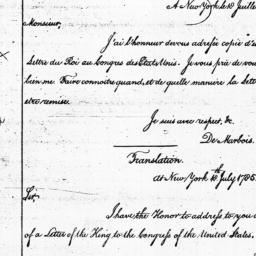 A New York le 18 Juillet
Monsieur,
J'ai l'honneur de vous adresser copie d'
Lettre du Roi au Congres des Etats Unis. Je vous prie de vou
bien me Faire connoitre quand, et de quelle manière la Lett
etre remise.
Je suis avec respect, &c.
De Marbois.
Translation.
At New York 18th July 1785
Sir,
I have the Honor to address to you
of a Letter of the King to the Congress of the United States.